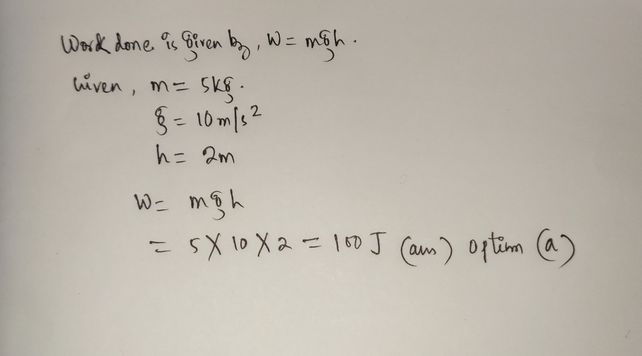 Work done is given by, W = mgh.
Given, m = 5kg.
g = 10 m/s²
h = 2m
W = mgh
= 5 X 10 X 2 = 100 J (ans) option (a)